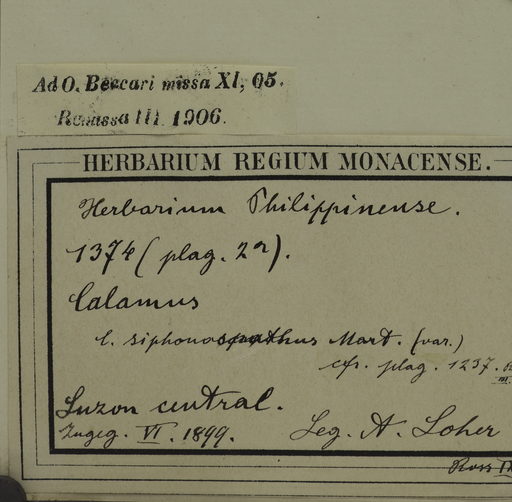 Ad O. Beccari missa XI, 05.
Remissa III. 1906.
HERBARIUM REGIUM MONACENSE.
Herbarium Philippinense.
1374 (plag. 2a).
Calamus
C. siphonospathus Mart. (var.)
cfr. plag. 1237.
Luzon central.
Zugeg. VI. 1899.
Leg. A. Loher
Ross